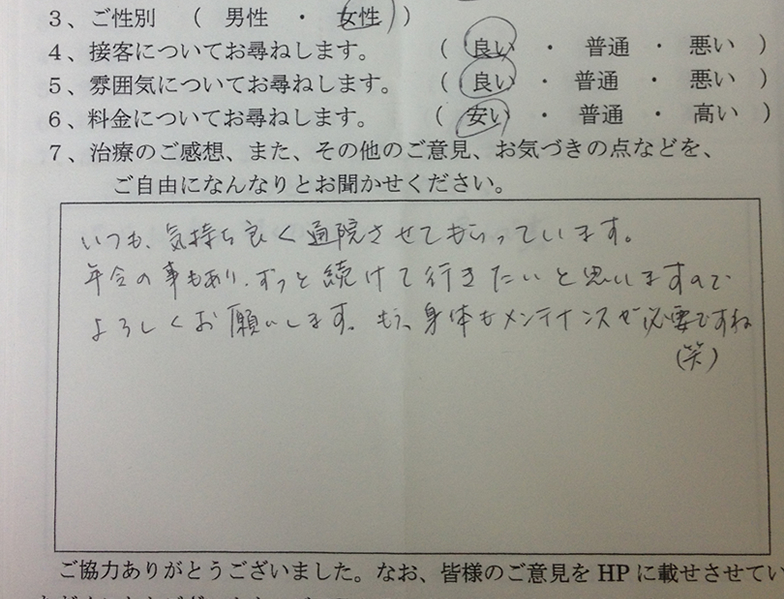 3、ご性別 ( 男性 ・ 女性 )
4、接客についてお尋ねします。 ( 良い ・ 普通 ・ 悪い )
5、雰囲気についてお尋ねします。 ( 良い ・ 普通 ・ 悪い )
6、料金についてお尋ねします。 ( 安い ・ 普通 ・ 高い )
7、治療のご感想、また、その他のご意見、お気づきの点などを、
ご自由になんなりとお聞かせください。
いつも、気持ち良く通院させてもらっています。
年令の事もあり、ずっと続けて行きたいと思いますので
よろしくお願いします。もう、身体もメンテイナンスが必要ですね
(笑)
ご協力ありがとうございました。なお、皆様のご意見を HP に載せさせてい